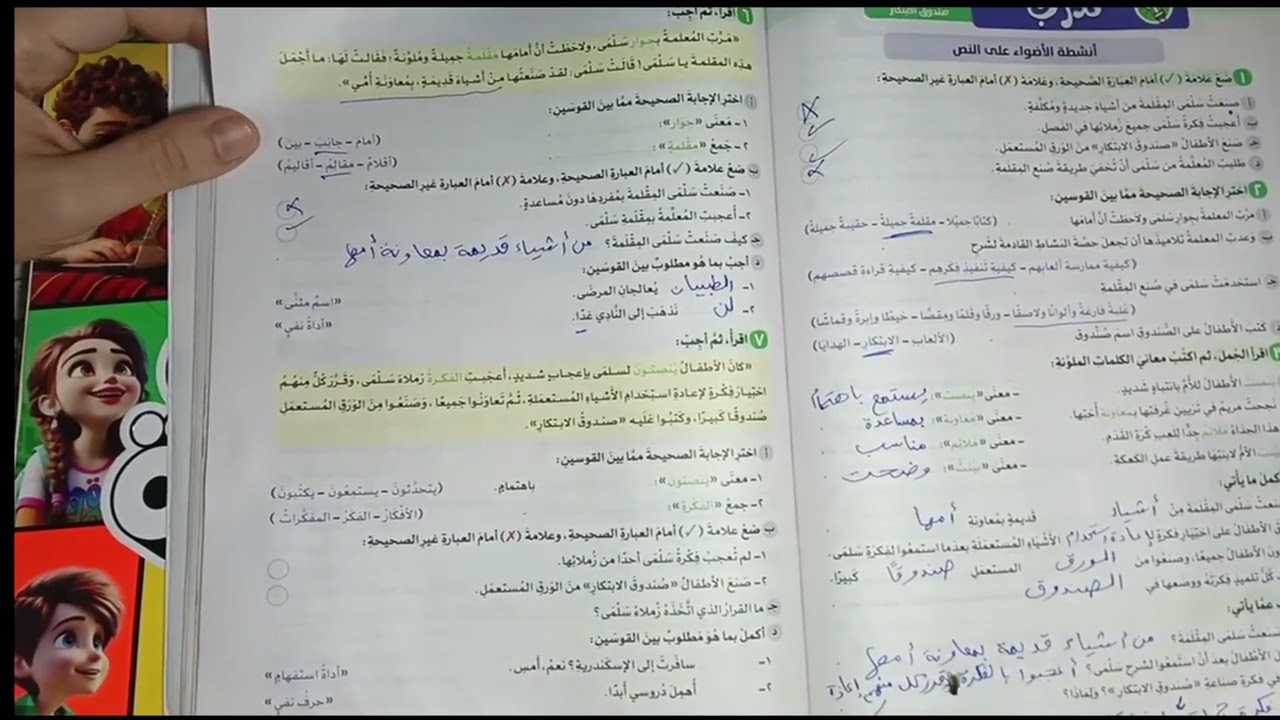 تدرب
صندوق الابتكار
أنشطة الأضواء على النص
١ ضع علامة (✓) أمام العبارة الصحيحة، وعلامة (✗) أمام العبارة غير الصحيحة:
أ صنعت سلمى المقلمة من أشياء جديدة ومكلفة.
ب أعجبت فكرة سلمى جميع زملائها في الفصل.
ج صنع الأطفال «صندوق الابتكار» من الورق المستعمل.
د طلبت المعلمة من سلمى أن تخفي طريقة صنع المقلمة.
٢ اختر الإجابة الصحيحة مما بين القوسين:
أ مرت المعلمة بجوار سلمى ولاحظت أن أمامها (كتابًا جميلًا - مقلمة جميلة - حقيبة جميلة)
ب وعدت المعلمة تلاميذها أن تجعل حصة النشاط القادمة لشرح
(كيفية ممارسة ألعابهم - كيفية تنفيذ فكرهم - كيفية قراءة قصصهم)
ج استخدمت سلمى في صنع المقلمة
(علبة فارغة وألوانًا ولاصقًا - ورقًا وقلمًا ومقصًا - خيطًا وإبرة وقماشًا)
كتب الأطفال على الصندوق اسم صندوق (الألعاب - الابتكار - الهدايا)
اقرأ الجمل، ثم اكتب معاني الكلمات الملونة:
الأطفال للأم بانتباه شديد. - معنى «ينصت»: يستمع باهتمام
نجحت مريم في تزيين غرفتها بمعاونة أختها. - معنى «معاونة»: بمساعدة
هذا الحذاء ملائم جدًا للعب كرة القدم. - معنى «ملائم»: مناسب
الأم لابنتها طريقة عمل الكعكة. - معنى «بينت»: وضحت
أكمل ما يأتي:
سلمى المقلمة من أشياء قديمة بمعاونة أمها
الأطفال على اختيار فكرة لإعادة استخدام الأشياء المستعملة بعدما استمعوا لفكرة سلمى.
الأطفال جميعًا، وصنعوا من الورق المستعمل صندوقًا كبيرًا.
كل تلميذ فكرته ووضعها في الصندوق
عما يأتي:
صنعت سلمى المقلمة؟ من أشياء قديمة بمعاونة أمها
الأطفال بعد أن استمعوا لشرح سلمى؟ أعجبوا بالفكرة وقرر كل منهم إعادة
في فكرة صناعة «صندوق الابتكار»؟ ولماذا؟
٦ اقرأ، ثم أجب:
«مرت المعلمة بجوار سلمى، ولاحظت أن أمامها مقلمة جميلة وملونة؛ فقالت لها: ما أجمل
هذه المقلمة يا سلمى! قالت سلمى: لقد صنعتها من أشياء قديمة، بمعاونة أمي».
أ اختر الإجابة الصحيحة مما بين القوسين:
١- معنى «جوار»: (أمام - جانب - بين)
٢- جمع «مقلمة»: (أقلام - مقالم - أقاليم)
ب ضع علامة (✓) أمام العبارة الصحيحة، وعلامة (✗) أمام العبارة غير الصحيحة:
١- صنعت سلمى المقلمة بمفردها دون مساعدة.
٢- أعجبت المعلمة بمقلمة سلمى.
ج كيف صنعت سلمى المقلمة؟ من أشياء قديمة بمعاونة أمها
د أجب بما هو مطلوب بين القوسين:
١- الطبيبان يعالجان المرضى. «اسم مثنى»
٢- لن نذهب إلى النادي غدًا. «أداة نفي»
٧ اقرأ، ثم أجب:
«كان الأطفال ينصتون لسلمى بإعجاب شديد، أعجبت الفكرة زملاء سلمى، وقرر كل منهم
اختيار فكرة لإعادة استخدام الأشياء المستعملة، ثم تعاونوا جميعًا، وصنعوا من الورق المستعمل
صندوقًا كبيرًا، وكتبوا عليه «صندوق الابتكار».
أ اختر الإجابة الصحيحة مما بين القوسين:
١- معنى «ينصتون»: باهتمام. (يتحدثون - يستمعون - يكتبون)
٢- جمع «الفكرة»: (الأفكار - الفكر - المفكرات)
ب ضع علامة (✓) أمام العبارة الصحيحة، وعلامة (✗) أمام العبارة غير الصحيحة:
١- لم تعجب فكرة سلمى أحدًا من زملائها.
٢- صنع الأطفال «صندوق الابتكار» من الورق المستعمل.
ج ما القرار الذي اتخذه زملاء سلمى؟
د أكمل بما هو مطلوب بين القوسين:
١- سافرت إلى الإسكندرية؟ نعم، أمس. «أداة استفهام»
٢- أهمل دروسي أبدًا. «حرف نفي»